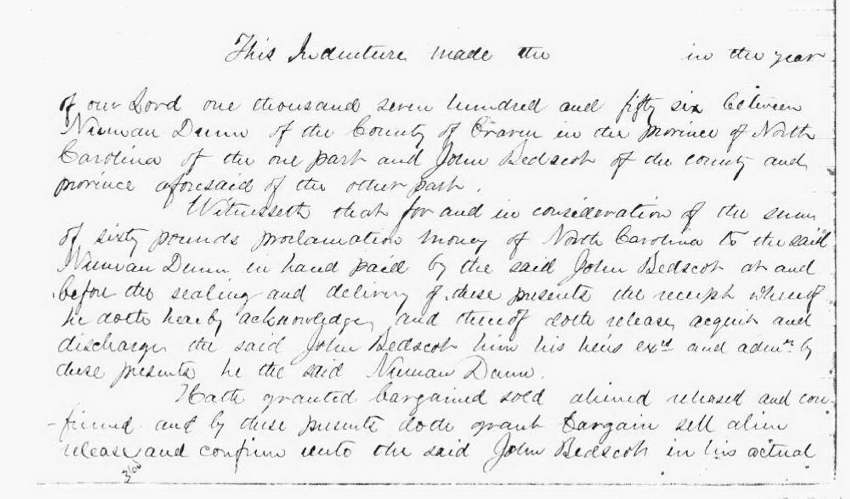 This Indenture made the in the year
of our Lord one thousand seven hundred and fifty six between
Nieman Dunn of the County of Craven in the province of North
Carolina of the one part and John Bedscot of the county and
province aforesaid of the other part.
Witnesseth that for and in consideration of the sum
of sixty pounds proclamation money of North Carolina to the said
Nieman Dunn in hand paid by the said John Bedscot at and
before the sealing and delivery of these presents the receipt whereof
he doth hearby acknowledge, and thereof doth release, acquit and
discharge the said John Bedscot him his heirs exrs and admrs by
these presents he the said Nieman Dunn.
Hath granted bargained sold aliened released and con-
-firmed and by these presents doth grant bargain sell alien
release and confirm unto the said John Bedscot in his actual